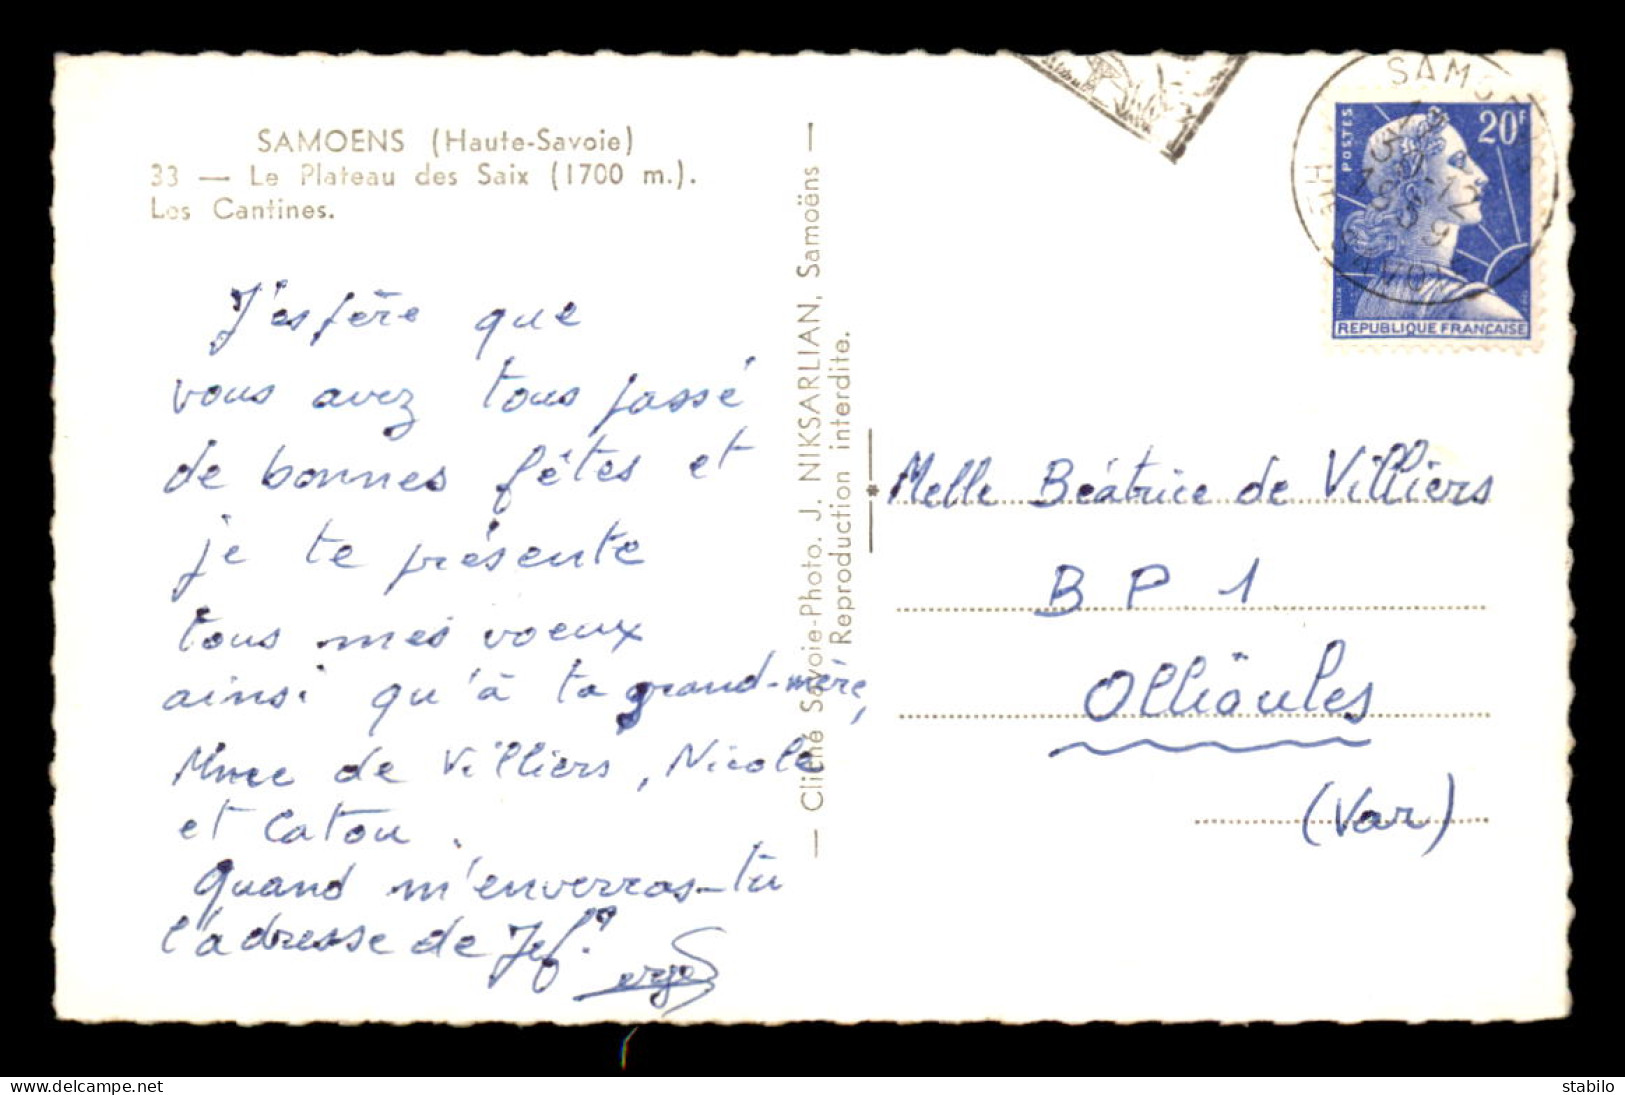 SAMOENS (Haute-Savoie)
33 — Le Plateau des Saix (1700 m.).
Les Cantines.
J'espère que
vous avez tous passé
de bonnes fêtes et
je te présente
tous mes voeux
ainsi qu'à ta grand-mère,
Mme de Villiers, Nicole
et Catou.
Quand m'enverras-tu
l'adresse de Jef?
Serge
— Cliché Savoie-Photo. J. NIKSARLIAN, Samoëns —
Reproduction interdite.
SAMOENS
HTE SAVOIE
-12
1959
POSTES
20F
REPUBLIQUE FRANÇAISE
Melle Béatrice de Villiers
B P 1
Ollioules
(Var)
delcampe.net
stabilo